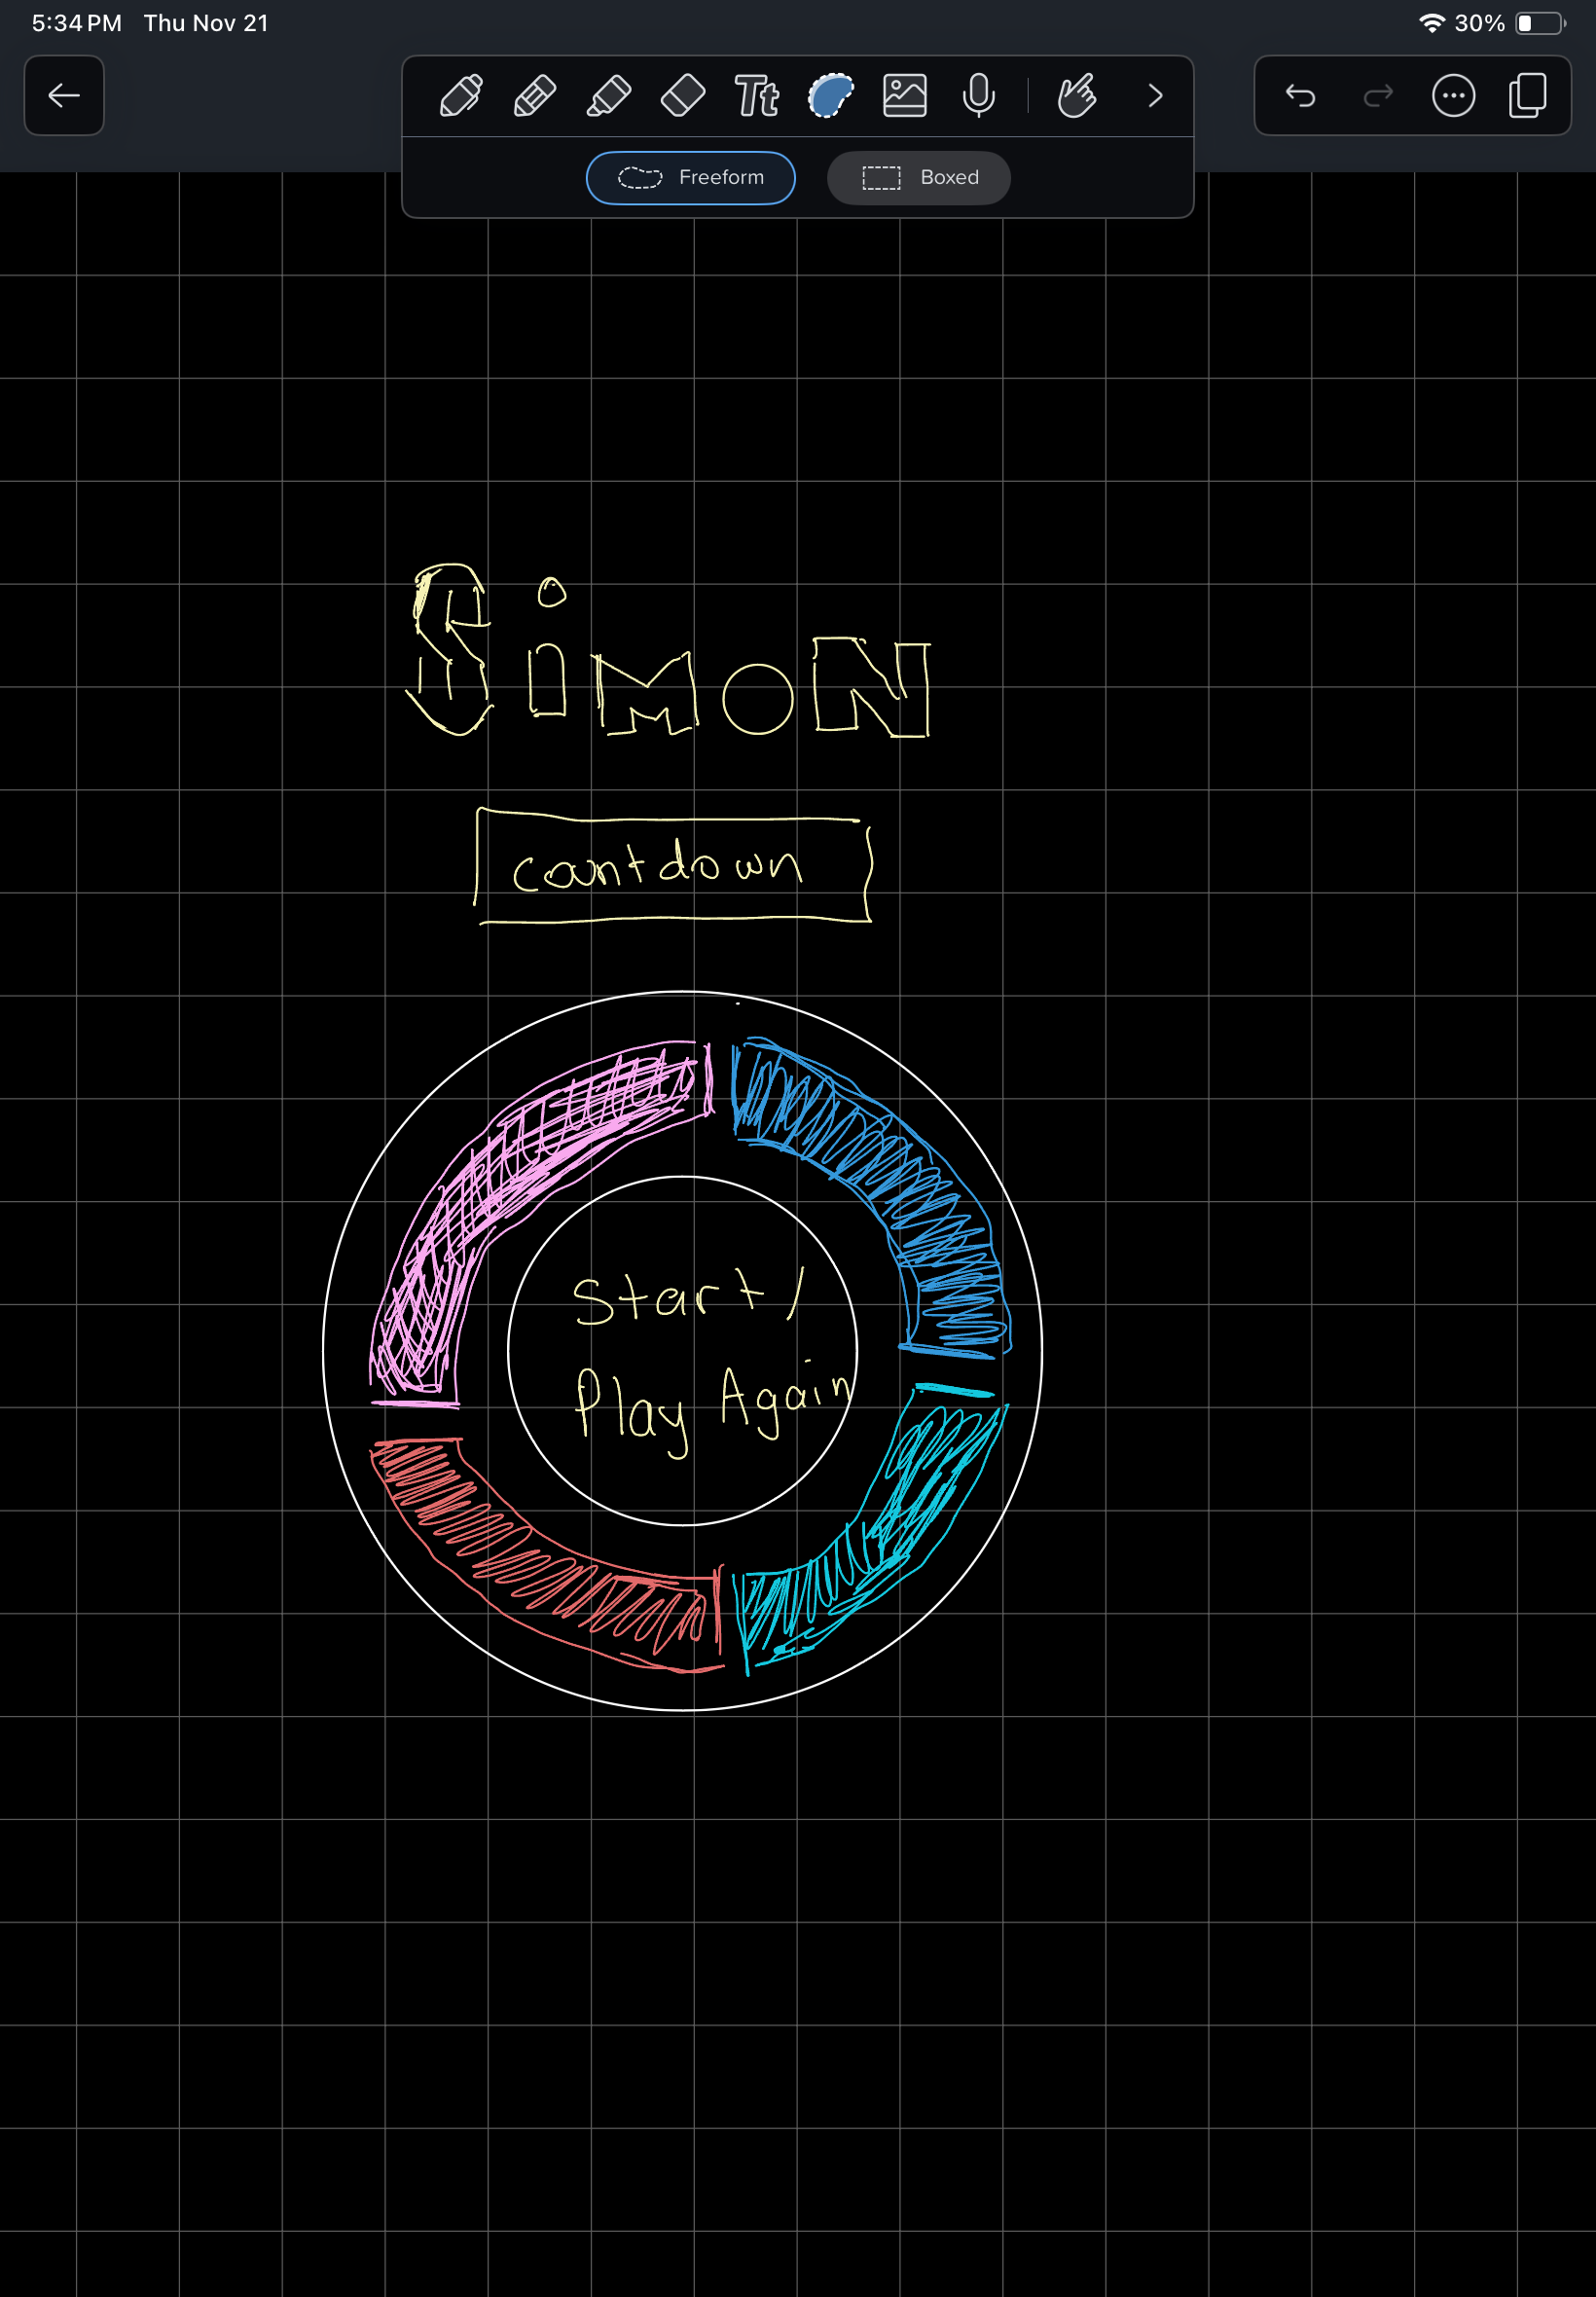 5:34 PM Thu Nov 21 30%
Tt
Freeform Boxed
SiMON
countdown
Start /
Play Again